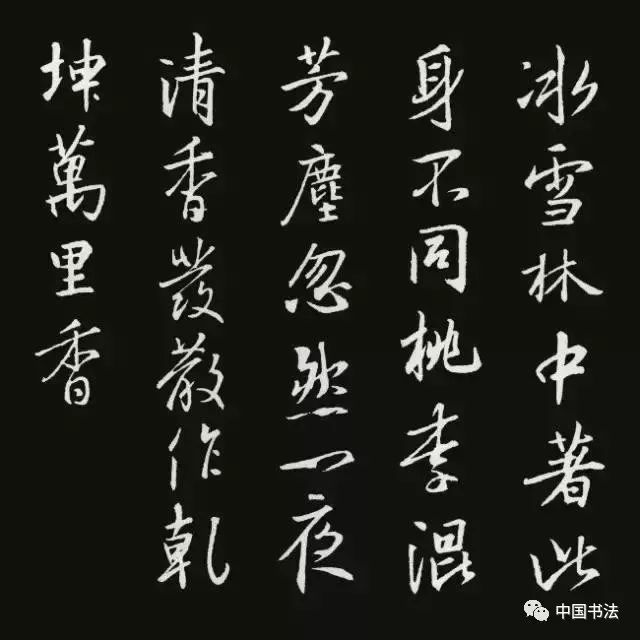 冰雪林中著此
身不同桃李混
芳塵忽然一夜
清香發散作乾
坤萬里香
中国书法